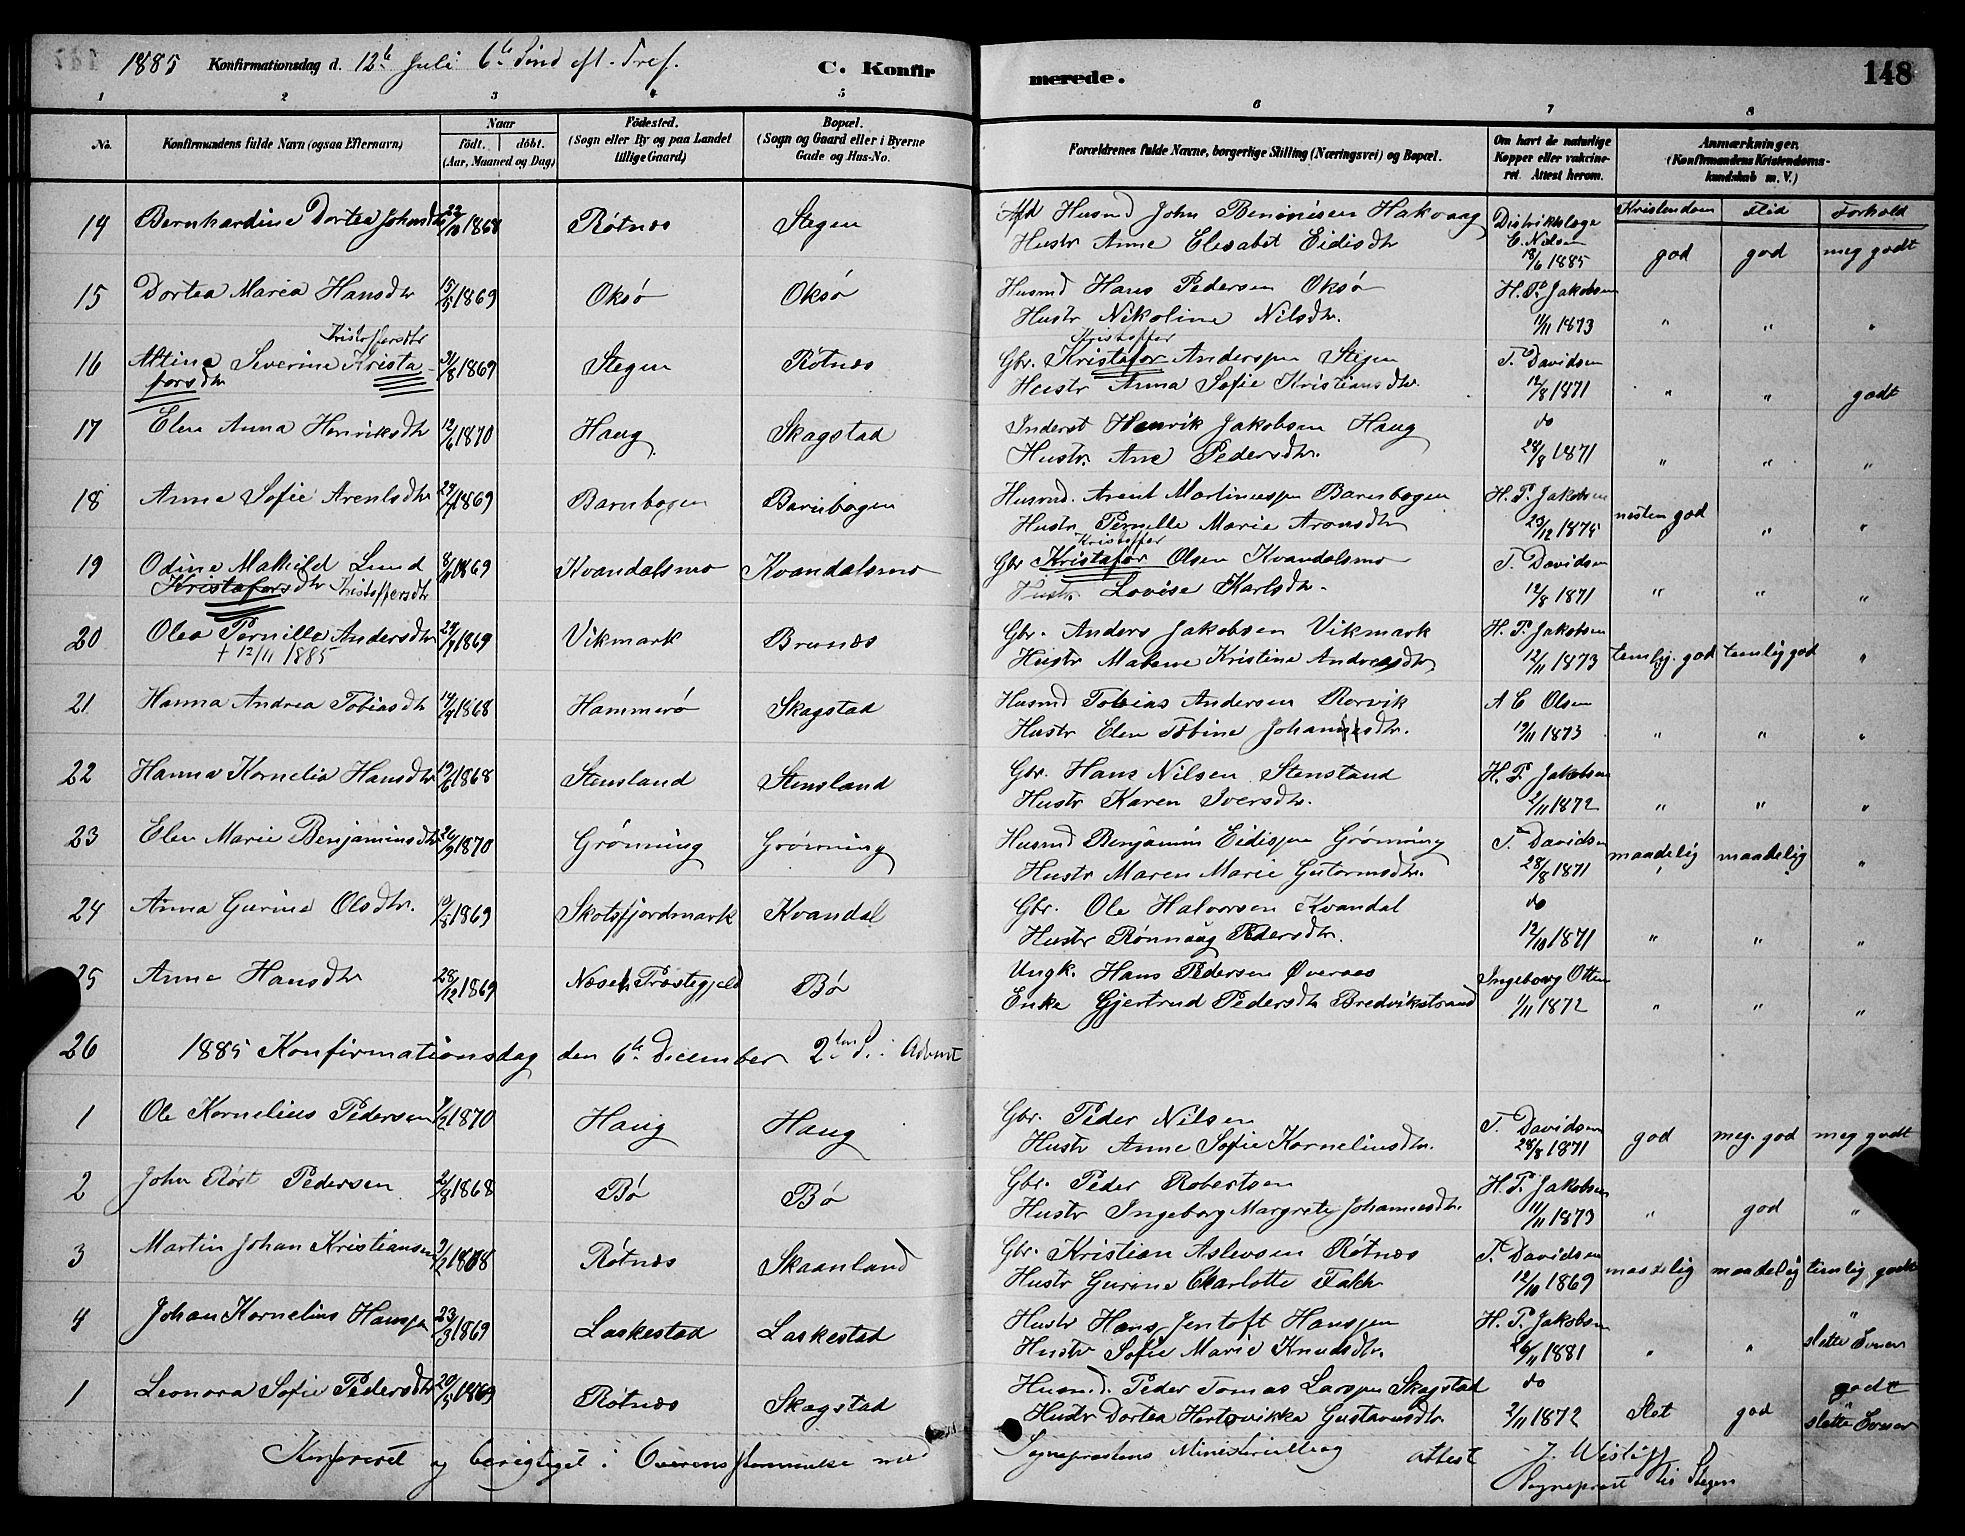 1885 Konfirmationsdag d. 12te Juli 6te Sønd eft. Tref. C. Konfirmerede. 148
1 2 3 4 5 6 7 8
No. Konfirmandens fulde Navn (ogsaa Efternavn) Naar født. døbt. (Aar, Maaned og Dag) Fødested. (Sogn eller By og paa Landet tillige Gaard) Bopæl. (Sogn og Gaard eller i Byerne Gade og Hus-No. Forældrenes fulde Navne, borgerlige Stilling (Næringsvei) og Bopæl. Om havt de naturlige Kopper eller vakcineret. Attest herom. Anmærkninger. (Konfirmandens Kristendomskundskab m. V.)
Kristendom Flid Forhold
14 Bernhardine Dortea Johnsdtr 22/10 1868 Røtnæs Stegen Afd Husmd John Benonisen Hakvaag Distriktslæge
Hustr Anne Elesabet Eidisdtr C. Nilsen 18/6 1885 god god meg godt
15 Dortea Maria Hansdtr 15/5 1869 Oksø Oksø Husmd Hans Pedersen Oksø H. P. Jakobsen
Hustr Nikoline Nilsdtr. 11/11 1873 " " "
Kristoffersdtr Kristoffer
16 Altine Severine Krista- 31/8 1869 Stegen Røtnæs Gbr. Kristafor Anderssen Stegen T. Davidsen
forsdtr Hustr Anna Sofie Kristiansdtr. 12/8 1871 " " godt
17 Elen Anna Henriksdtr 12/6 1870 Haug Skagstad Inderst Henrik Jakobsen Haug do
Hustr. Ane Pedersdtr. 28/8 1871 " " "
18 Anne Sofie Arentsdtr 1869 Barnbogen Barnbogen Husmd. Arent Martinussen Barnbogen H. P. Jakobsen
Hustr Pernille Marie Aronsdtr 23/12 1875 næsten god " "
Kristoffer
19 Odine Mathild Lund 1869 Kvandalsmo Kvandalsmo Gbr Kristafor Olsen Kvandalsmo T. Davidsen
Kristaforsdtr Kristoffersdtr Hustr. Lovise Karlsdtr. 12/8 1871 " " "
20 Olea Pernille Andersdtr 1869 Vikmark Brunæs Gbr. Anders Jakobsen Vikmark H. P. Jakobsen
+ 12/11 1885 Hustr Malene Kristine Andreasdtr 12/11 1873 temlig. god temlig god "
21 Hanna Andrea Tobiasdtr 1868 Hammerø Skagstad Husmd Tobias Andersen Rorvik A C Olsen
Hustr Elen Tobine Johannesdtr. 1873 " " "
22 Hanna Kornelia Hansdtr 19/6 1868 Stensland Stensland Gbr. Hans Nilsen Stensland H. P. Jakobsen
Hustr Karen Iversdtr. 2/11 1872 " " "
23 Elen Marie Benjaminsdtr 1870 Grønning Grønning Husmd Benjamin Eidissen Grønning T. Davidsen
Hustr Maren Marie Gutormsdtr. 28/8 1871 maadelig maadelig "
24 Anna Gurine Olsdtr. 1869 Skotsfjordmark Kvandal Gbr. Ole Halvorsen Kvandal do
Hustr Rønnaug Pedersdtr. 12/10 1871 " " "
25 Anne Hansdtr 28/12 1869 Næseh Præstegjeld Bø Ungk. Hans Pedersen Øveraas Ingeborg Otten
Enke Gjertrud Pedersdtr Bredvikstrand 1/11 1872 " " "
26 1885 Konfirmationsdag den 6te December 2den S. i Advent
1 Ole Kornelius Pedersen 1870 Haug Haug Gbr. Peder Nilsen T. Davidsen
Hustr Anne Sofie Korneliusdtr. 28/8 1871 god meg. god meg godt
2 John Røst Pedersen 2/8 1868 Bø Bø Gbr. Peder Robertsen H. P. Jakobsen
Hustr Ingeborg Margrete Johannesdtr. 11/11 1873 " god "
3 Martin Johan Kristiansen 1868 Røtnæs Skaanland Gbr. Kristian Aslevsen Røtnæs T. Davidsen
Hustr Gurine Charlotte Falch 12/10 1869 maadelig maadelig temlig. godt
4 Johan Kornelius Hanssen 23/3 1869 Laskestad Laskestad Hustr Hans Jentoft Hanssen H. P. Jakobsen "
Hustr Sofie Marie Knudsdtr. 26/11 1881 " " slette Evner
1 Leonora Sofie Pedersdtr 1869 Røtnæs Skagstad Husmd. Peder Tomas Larssen Skagstad do godt
Hustr Dortea Hertevikka Gustavusdtr. 2/11 1872 Slet god slette Evner
Konfereret og berigtiget i Overensstemmelse med Sogneprestens Ministerialbog attest
Sogneprest til Stegen